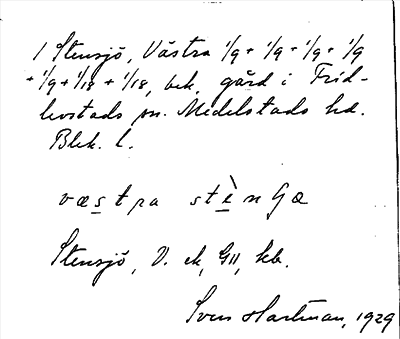 1 Stensjö, Västra 1/9 + 1/9 + 1/9 + 1/9
+ 1/9 + 1/18 + 1/18, bek. gård i Frid-
levstads sn. Medelstads hd.
Blek. l.
væstra stènGa
Stensjö, V. ek, G11, kb.
Sven Hartman, 1929